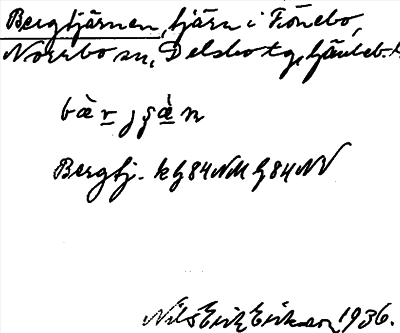 Bergtjärnen, tjärn i Fönebo,
Norrbo sn, Delsbo tg,
bà r j ʂ æ̀ n
Bergtj. k G84NM G84NV
Nils Erik Erikson 1936.